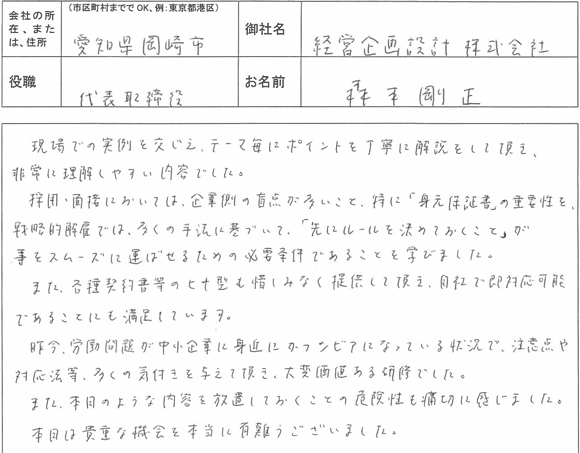 会社の所在、または、住所
(市区町村まででOK、例:東京都港区)
愛知県岡崎市
御社名
経営企画設計 株式会社
役職
代表取締役
お名前
森本 剛正
現場での実例を交じえ、テーマ毎にポイントを丁寧に解説をして頂き、
非常に理解しやすい内容でした。
採用・面接においては、企業側の盲点が多いこと、特に「身元保証書」の重要性を、
戦略的解雇では、多くの手法に基づいて、「先にルールを決めておくこと」が
事をスムーズに運ばせるための必要条件であることを学びました。
また、各種契約書等のヒナ型も惜しみなく提供して頂き、自社で即対応可能
であることにも満足しています。
昨今、労働問題が中小企業に身近にかつシビアになっている状況で、注意点や
対応法等、多くの気付きを与えて頂き、大変価値ある研修でした。
また、本日のような内容を放置しておくことの危険性も痛切に感じました。
本日は貴重な機会を本当に有難うございました。